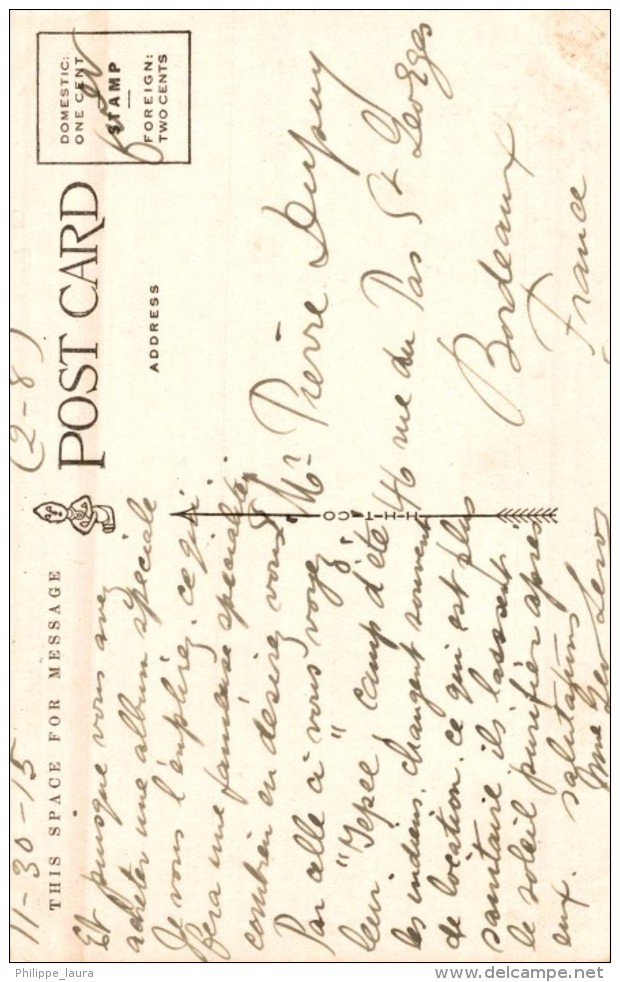 11-30-15 (2-8)
THIS SPACE FOR MESSAGE
POST CARD
Et puisque vous avez
acheter une album spéciale
Je vous l'emplirez. ce qui
fera une fameuse specialitée,
combien en desirez vous?
Par celle ci vous voyez
leur "Tepee" camp d'été,
les indiens, changent souvent
de location. ce qui est plus
sanitaire ils laissent
le soleil purifier apres
eux. salutations
Mme Geo
ADDRESS
DOMESTIC:
ONE CENT
STAMP
FOREIGN:
TWO CENTS
Mr Pierre Dupuy
46 rue du Pas St Georges
Bordeaux
France
H-H-T-CO
Philippe_laura
www.delcampe.net